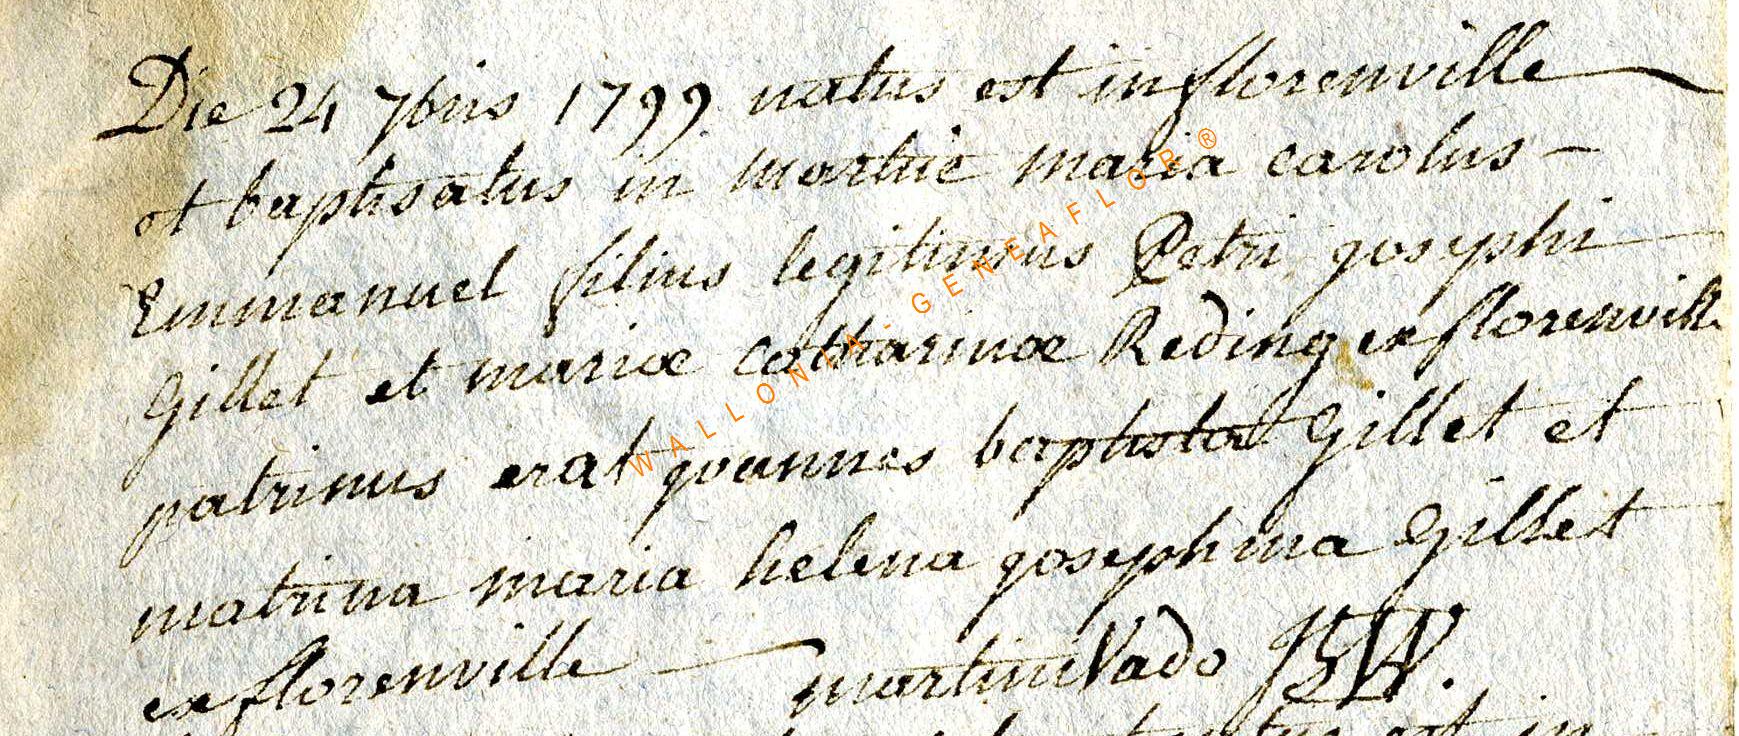 Die 24 7bris 1799 natus est in florenville
et baptisatus in martué maria carolus -
Emmanuel filius legitimus Petri josephi
Gillet et mariæ catharinæ Reding ex florenville
patrinus erat joannes baptista Gillet et
matrina maria helena josephina Gillet
ex florenville martini Vado
est in
WALLONIA - GENEAFLOR ®